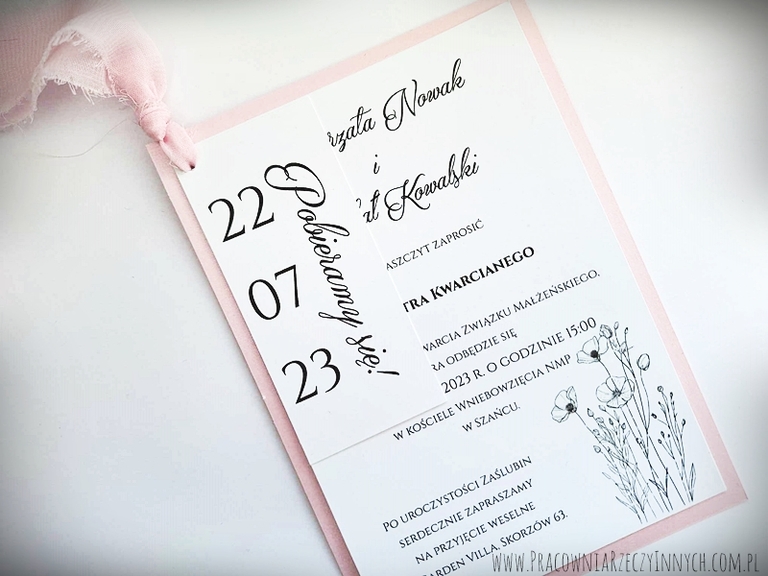 22
07
23
Pobieramy się!
rzata Nowak
i
ał Kowalski
ASZCZYT ZAPROSIĆ
TRA KWARCIANEGO
WARCIA ZWIĄZKU MAŁŻEŃSKIEGO,
RA ODBĘDZIE SIĘ
2023 R. O GODZINIE 15:00
W KOŚCIELE WNIEBOWZIĘCIA NMP
W SZAŃCU.
PO UROCZYSTOŚCI ZAŚLUBIN
SERDECZNIE ZAPRASZAMY
NA PRZYJĘCIE WESELNE
ARDEN VILLA, SKORZÓW 63.
WWW.PRACOWNIARZECZYINNYCH.COM.PL